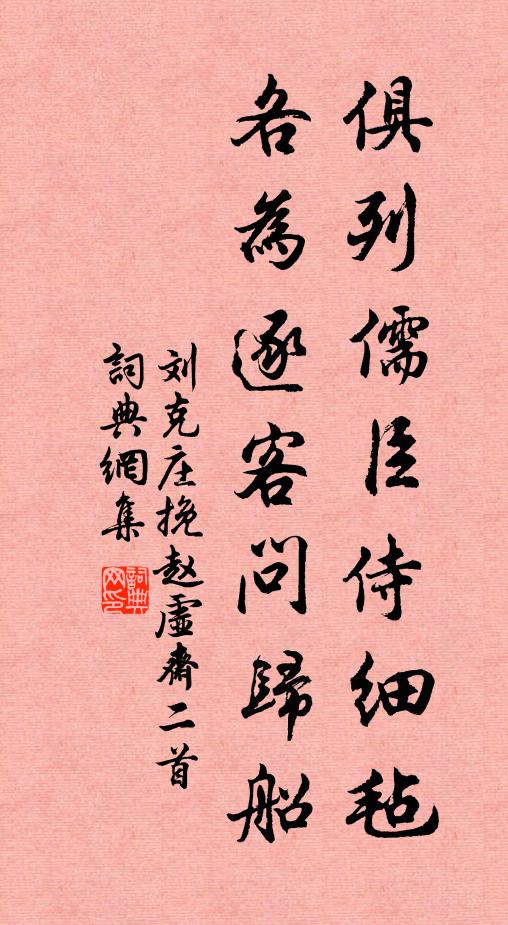 俱列儒臣侍细毡
各為逐客问歸船
刘克庄挽赵虚斋二首
詞典網集
詞典网印